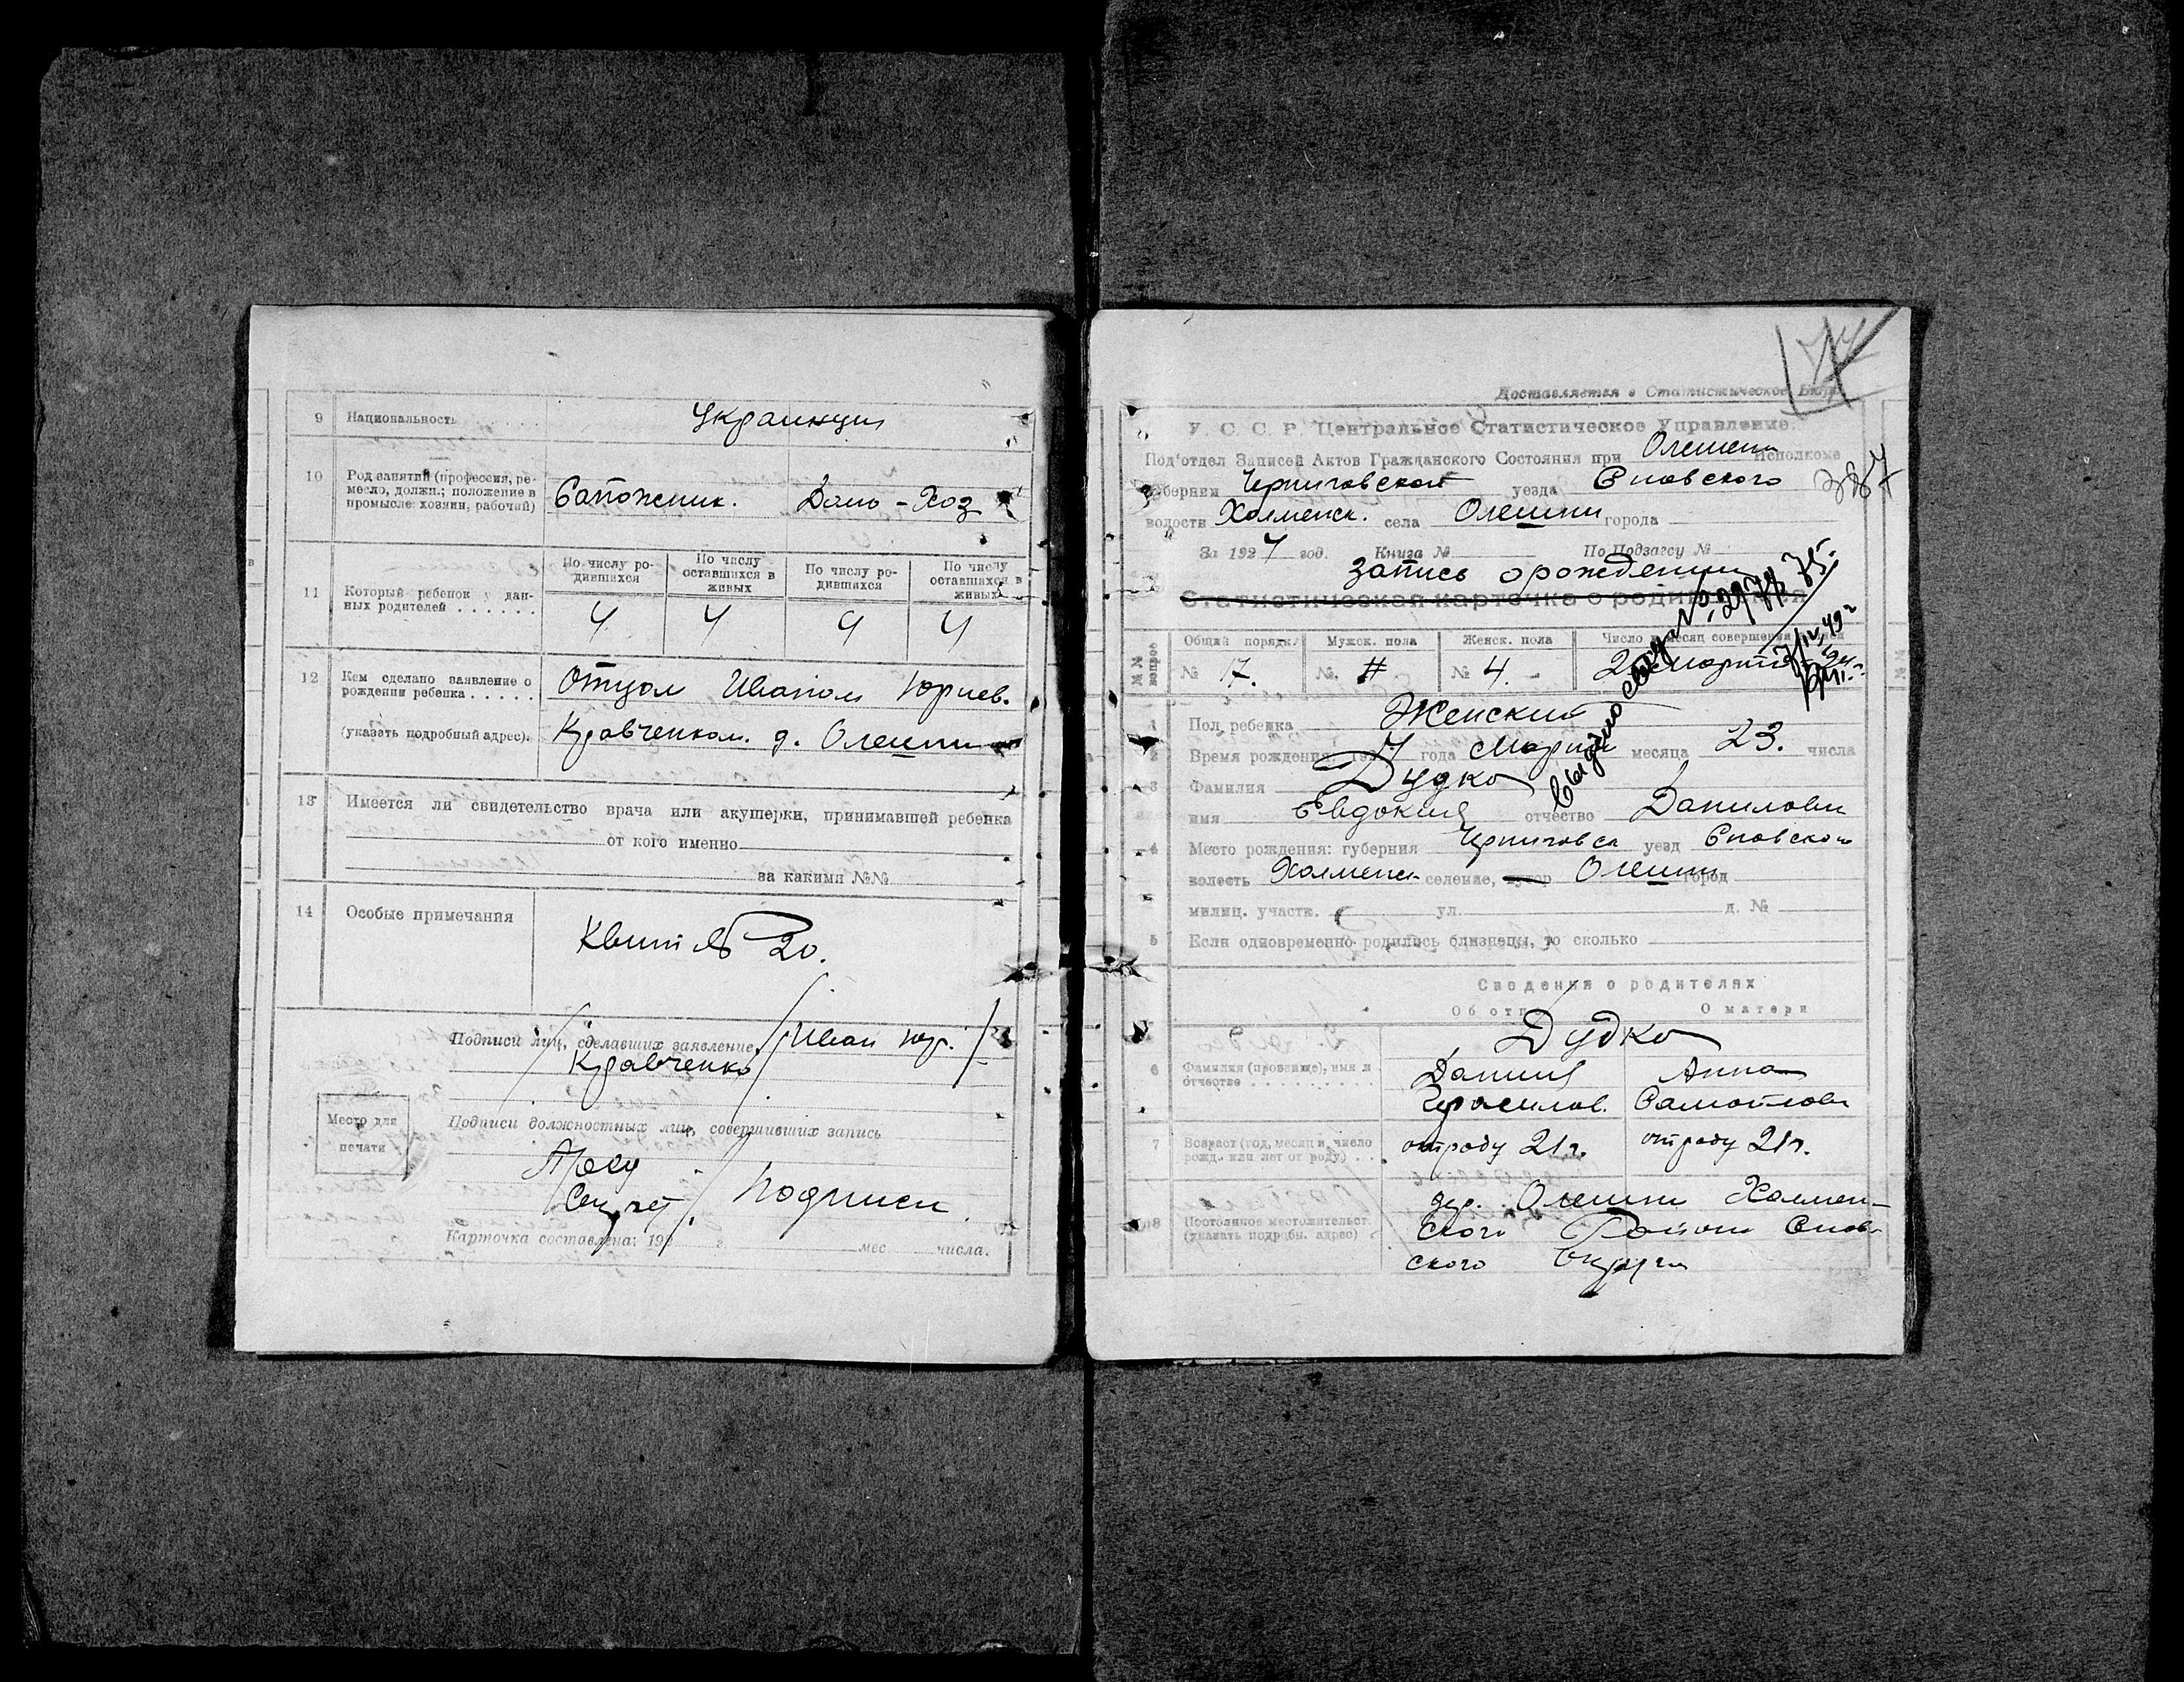 9 Национальность Украинцы
10 Род занятий (профессия, ре-
месло, должн.; положение в
промысле: хозяин, рабочий) Сапожник. Дом-Хоз
По числу ро-
дившихся По числу
оставшихся в
живых По числу ро-
дившихся По числу
оставшихся в
живых
11 Который ребенок у дан-
ных родителей 4 4 4 4
12 Кем сделано заявление о
рождении ребенка Отцом Иваном Юриев.
(указать подробный адрес). Кравченком. д. Олешни
13 Имеется ли свидетельство врача или акушерки, принимавшей ребенка
от кого именно
за какими №№
14 Особые примечания
Квит № 20.
Подписи лиц, сделавших заявление / Иван Юр. /
/ Кравченко /
Место для
печати
Подписи должностных лиц, совершивших запись
Секрет / Подписи
Карточка составлена: 192 г. мес числа.
Доставляется в Статистическое Бюро
У. С. С. Р. Центральное Статистическое Управление.
Под'отдел Записей Актов Гражданского Состояния при Олешен Исполкоме
губернии Черниговской уезда Сновского
волости Холменск. села Олешни города
За 1924 год. Книга № По Подзагсу №
Запись о рождении
Статистическая карточка о родившемся
№№ вопрос Общий порядк. Мужск. пола Женск. пола Число и месяц совершения записи
№ 17. № № 4.
Выдано
1 Пол ребенка Женский
2 Время рождения: 1924 года Марта месяца 23. числа
3 Фамилия Дудко
имя Евдокия отчество Даниловн
4 Место рождения: губерния Черниговск уезд Сновского
волость Холменск селение, хутор Олешни город
милиц. участк. ул. д. №
5 Если одновременно родились близнецы, то сколько
Сведения о родителях
Об отце О матери
Дудко
6 Фамилия (прозвище), имя и
отчество Даниил Анна
Герасимов. Самойлов
7 Возраст (год, месяц и, число
рожд. или лет от роду) от роду 21 г. от роду 21 г.
8 Постоянное местожительст.
(указать подробн. адрес)
дер. Олешни Холмен-
ского Района Снов-
ского Округа